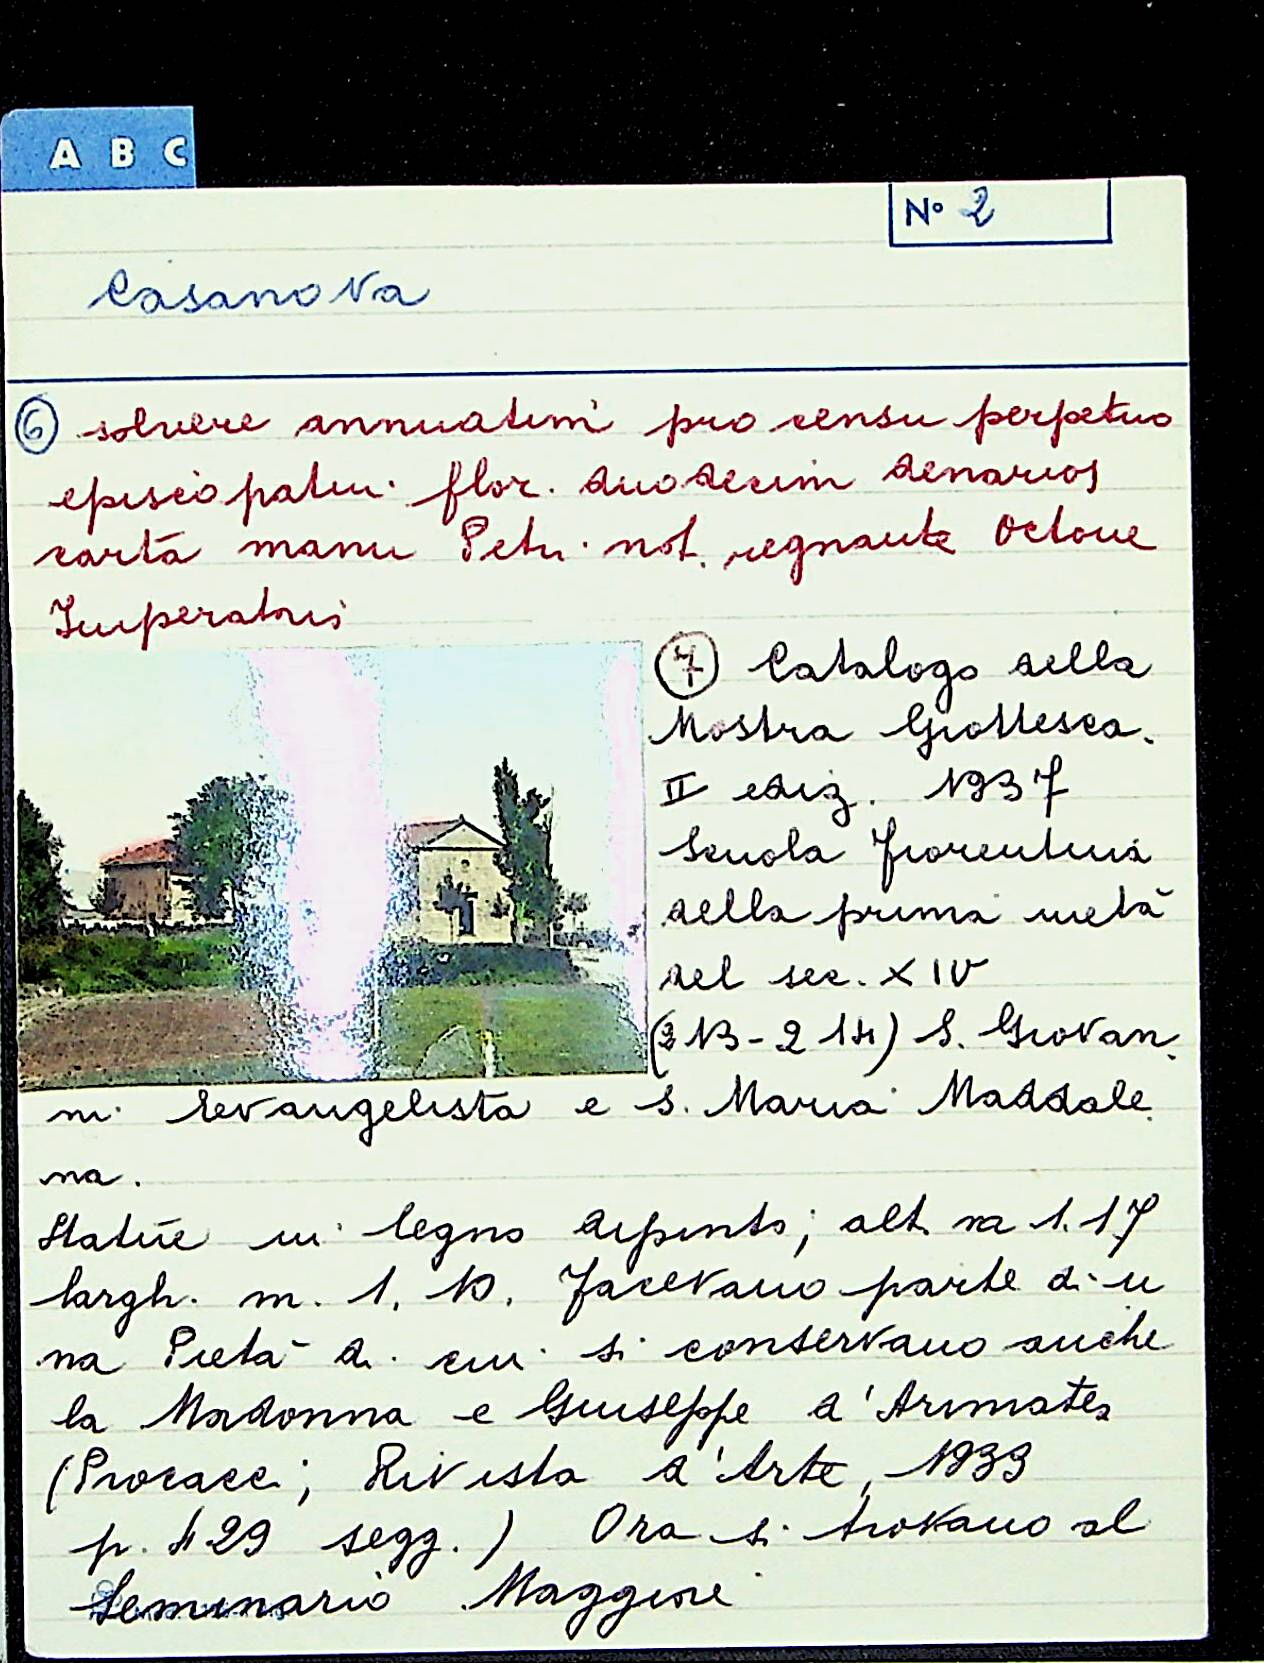 A B C
N° 2
Casanova
⑥ solvere annuatim pro censu perpetuo
episcopatui flor. duodecim denarios
cartā manu Petri not. regnante Octone
Imperatori
⑦ Catalogo della
Mostra Giottesca.
II ediz. 1937
Scuola fiorentina
della prima metà
del sec. XIV
(213-214) S. Giovan
ni Evangelista e S. Maria Maddale
na.
Statue in legno dipinto; alt. m 1.17
largh. m. 1,10. Facevano parte di u
na Pietà di cui si conservano anche
la Madonna e Giuseppe d'Arimatea
(Procacci; Rivista d'Arte, 1933
p. 429 segg.) Ora si trovano al
Seminario Maggiore